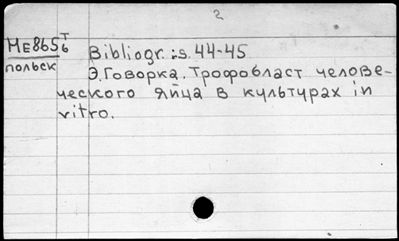 2
МЕ865 Т/6 Bibliogr.: s. 44-45
польск
Э. Говорка. Трофобласт челове-
ческого яйца в культурах in
vitro.